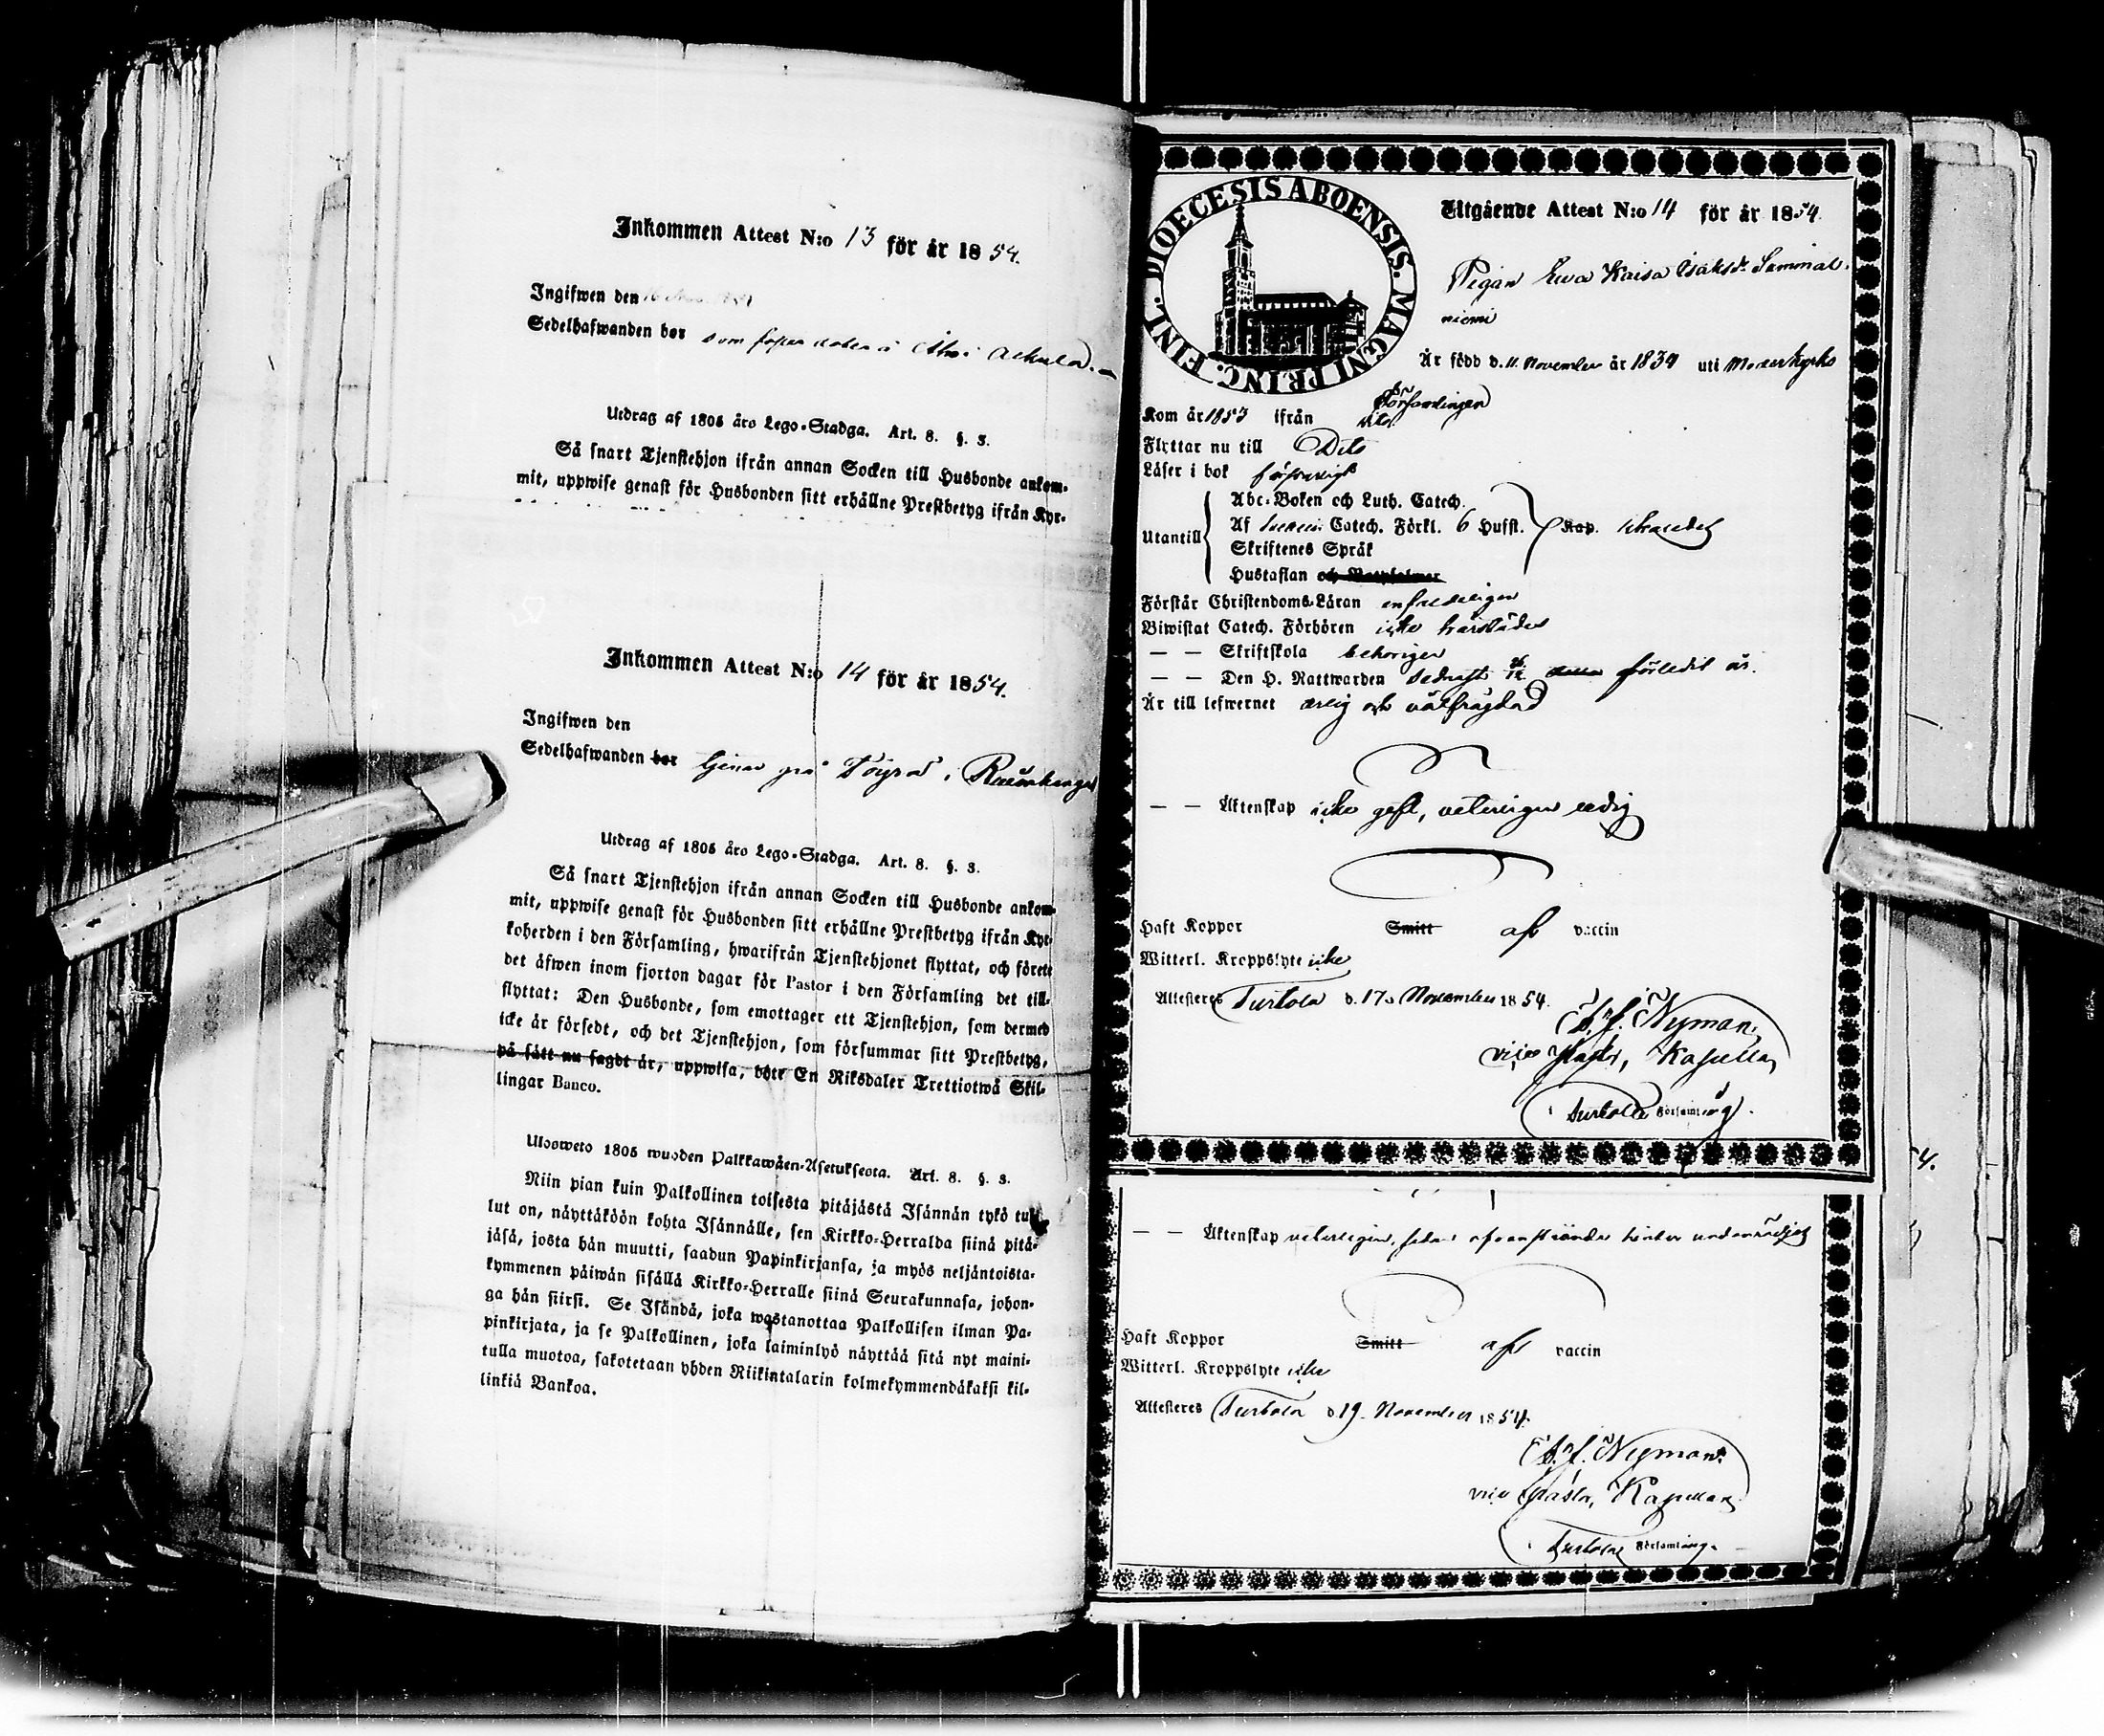 Inkommen Attest N:o 13 för år 1854.
Ingifwen den
Sedelhafwanden bor som
Utdrag af 1805 års Lego-Stadga. Art. 8. §. 3.
Så snart Tjenstehjon ifrån annan Socken till Husbonde ankom-
mit, uppwise genast för Husbonden sitt erhållne Prestbetyg ifrån Kyr-
Inkommen Attest N:o 14 för år 1854.
Ingifwen den
Sedelhafwanden bor tjenar på
Utdrag af 1805 års Lego-Stadga. Art. 8. §. 3.
Så snart Tjenstehjon ifrån annan Socken till Husbonde ankom-
mit, uppwise genast för Husbonden sitt erhållne Prestbetyg ifrån Kyr-
koherden i den Församling, hwarifrån Tjenstehjonet flyttat, och förete
det äfwen inom fjorton dagar för Pastor i den Församling det till-
flyttat: Den Husbonde, som emottager ett Tjenstehjon, som dermed
icke är försedt, och det Tjenstehjon, som försummar sitt Prestbetyg,
på sätt nu sagdt är, uppwisa, böte En Riksdaler Trettiotwå Skil-
lingar Banco.
Ulosweto 1805 wuoden Palkkawäen-Asetuksesta. Art. 8. §. 3.
Niin pian kuin Palkollinen toisesta pitäjästä Isännän tykö tul-
lut on, näyttäköön kohta Isännälle, sen Kirkko-Herralda siinä pitä-
jäsä, josta hän muutti, saadun Papinkirjansa, ja myös neljäntoista-
kymmenen päiwän sisällä Kirkko-Herralle siinä Seurakunnasa, johon-
ga hän siirsi. Se Isändä, joka wastanottaa Palkollisen ilman Pa-
pinkirjata, ja se Palkollinen, joka laiminlyö näyttää sitä nyt maini-
tulla muotoa, sakotetaan yhden Riikintalarin kolmekymmendäkaksi kil-
linkiä Bankoa.
FINL. DIOECESIS ABOENSIS. MAGNI PRINC.
Utgående Attest N:o 14 för år 1854.
Pigan Ewa Kaisa Isaksdr. Sammal-
niemi
Är född d. 11. November år 1834 uti Moderkyrko
församlingen
Kom år 1853 ifrån dito
Flyttar nu till Dito
Läser i bok försvarligt
Utantill
Abc-Boken och Luth. Catech.
Af Catech. Förkl. 6 Hufst. Kap.
Skriftenes Språk
Hustaflan och Botpsalmer
Förstår Christendoms-Läran enfaldeligen
Biwistat Catech. Förhören icke härstädes
— — Skriftskola behörigen
— — Den H. Nattwarden sednast 26/12 förledit år.
Är till lefwernet ärlig och välfrägdad
— — Äktenskap icke gift, veterligen ledig
Haft Koppor Smitt af vaccin
Witterl. Kroppslyte icke
Attesteres Turtola d. 17. November 1854.
Nyman.
vice Pastor, Kapellan
Turtola Församling.
4.
— — Äktenskap veterligen
Haft Koppor Smitt af vaccin
Witterl. Kroppslyte icke
Attesteres Turtola d 19. November 1854.
Nyman.
vice Pastor, Kapellan
Turtola Församling.